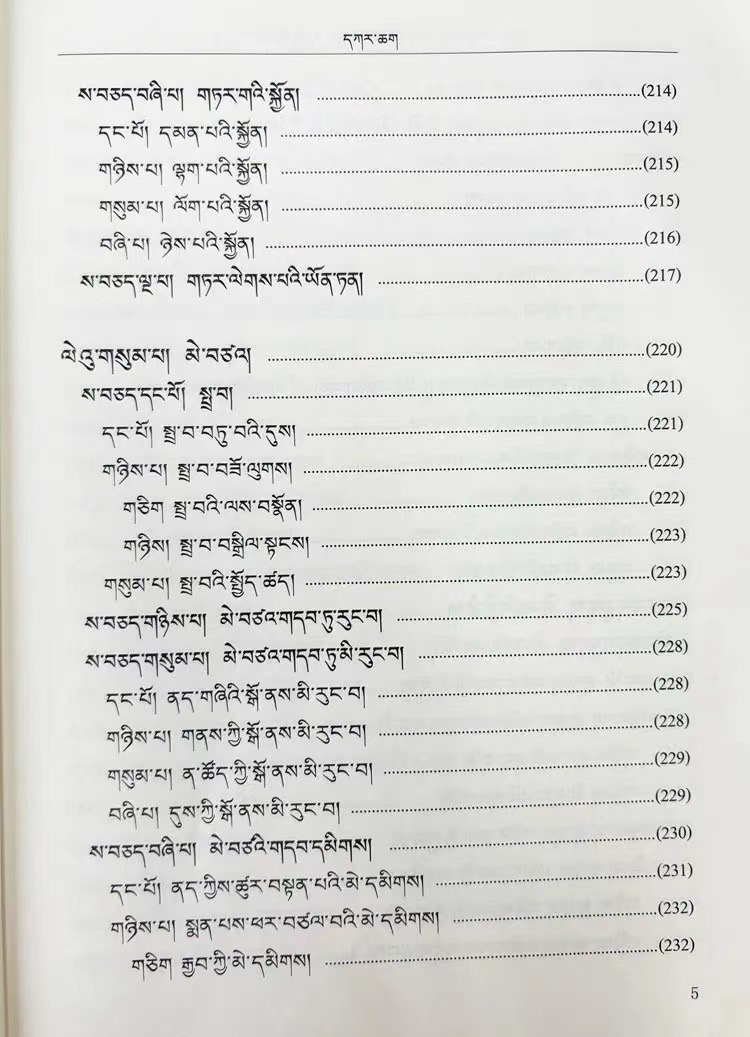 དཀར་ཆག
ས་བཅད་བཞི་པ། གཏར་གའི་སྐྱོན། ........................(214)
དང་པོ། དམན་པའི་སྐྱོན། ........................(214)
གཉིས་པ། ལྷག་པའི་སྐྱོན། ........................(215)
གསུམ་པ། ལོག་པའི་སྐྱོན། ........................(215)
བཞི་པ། ཉེས་པའི་སྐྱོན། ........................(216)
ས་བཅད་ལྔ་པ། གཏར་ལེགས་པའི་ཡོན་ཏན། ........................(217)
ལེའུ་གསུམ་པ། མེ་བཙའ། ........................(220)
ས་བཅད་དང་པོ། སྤྲ་བ། ........................(221)
དང་པོ། སྤྲ་བ་བཏུ་བའི་དུས། ........................(221)
གཉིས་པ། སྤྲ་བ་བཟོ་ལུགས། ........................(222)
གཅིག སྤྲ་བའི་ལས་བསྣོན། ........................(222)
གཉིས། སྤྲ་བ་བསྒྲིལ་སྟངས། ........................(223)
གསུམ་པ། སྤྲ་བའི་སྤྱོད་ཚད། ........................(223)
ས་བཅད་གཉིས་པ། མེ་བཙའ་གདབ་ཏུ་རུང་བ། ........................(225)
ས་བཅད་གསུམ་པ། མེ་བཙའ་གདབ་ཏུ་མི་རུང་བ། ........................(228)
དང་པོ། ནད་གཞིའི་སྒོ་ནས་མི་རུང་བ། ........................(228)
གཉིས་པ། གནས་ཀྱི་སྒོ་ནས་མི་རུང་བ། ........................(228)
གསུམ་པ། ན་ཚོད་ཀྱི་སྒོ་ནས་མི་རུང་བ། ........................(229)
བཞི་པ། དུས་ཀྱི་སྒོ་ནས་མི་རུང་བ། ........................(229)
ས་བཅད་བཞི་པ། མེ་བཙའི་གདབ་དམིགས། ........................(230)
དང་པོ། ནད་ཀྱིས་ཚུར་བསྟན་པའི་མེ་དམིགས། ........................(231)
གཉིས་པ། སྨན་པས་ཕར་བཙལ་བའི་མེ་དམིགས། ........................(232)
གཅིག རྒྱབ་ཀྱི་མེ་དམིགས། ........................(232)
5